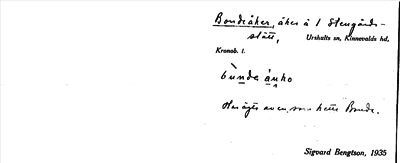 Bondåker, åker å 1 Stengårds-
slätt, Urshults sn, Kinnevalds hd,
Kronob. l.
Har ägts av en, som hette Bonde.
Sigvard Bengtson, 1935